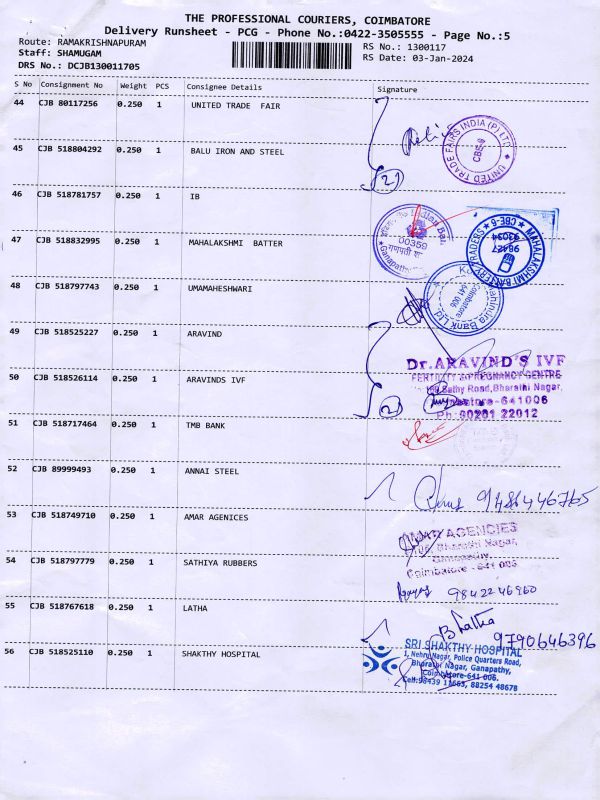 THE PROFESSIONAL COURIERS, COIMBATORE
Delivery Runsheet - PCG - Phone No.:0422-3505555 - Page No.:5
Route: RAMAKRISHNAPURAM
RS No.: 1300117
Staff: SHAMUGAM
RS Date: 03-Jan-2024
DRS No.: DCJB130011705
S No Consignment No Weight PCS Consignee Details Signature
44 CJB 80117256 0.250 1 UNITED TRADE FAIR
UNITED TRADE FAIRS INDIA (P) LTD
45 CJB 518804292 0.250 1 BALU IRON AND STEEL
(2)
46 CJB 518781757 0.250 1 IB
00359
गणपती
Ganapathy
MAHALAKSHMI BATTERY TRADERS CBE-6
98427
93094
47 CJB 518832995 0.250 1 MAHALAKSHMI BATTER
48 CJB 518797743 0.250 1 UMAMAHESHWARI
Bank Ltd
Coimbatore
641 006
49 CJB 518525227 0.250 1 ARAVIND
Dr.ARAVIND'S IVF
FERTILITY & PREGNANCY CENTRE
50 CJB 518526114 0.250 1 ARAVINDS IVF
Sathy Road, Bharathi Nagar,
Coimbatore-641006
(2)
Ph:90201 22012
51 CJB 518717464 0.250 1 TMB BANK
52 CJB 89999493 0.250 1 ANNAI STEEL
9486446765
53 CJB 518749710 0.250 1 AMAR AGENICES
AGENCIES
Bharathi Nagar,
Ganapathy,
Coimbatore - 641 006
54 CJB 518797779 0.250 1 SATHIYA RUBBERS
9842246960
55 CJB 518767618 0.250 1 LATHA
Latha
9790646396
56 CJB 518525110 0.250 1 SHAKTHY HOSPITAL
SRI SHAKTHY HOSPITAL
1, Nehru Nagar, Police Quarters Road,
Bharathi Nagar, Ganapathy,
Coimbatore-641 006.
Cell:98439 11665, 88254 48678